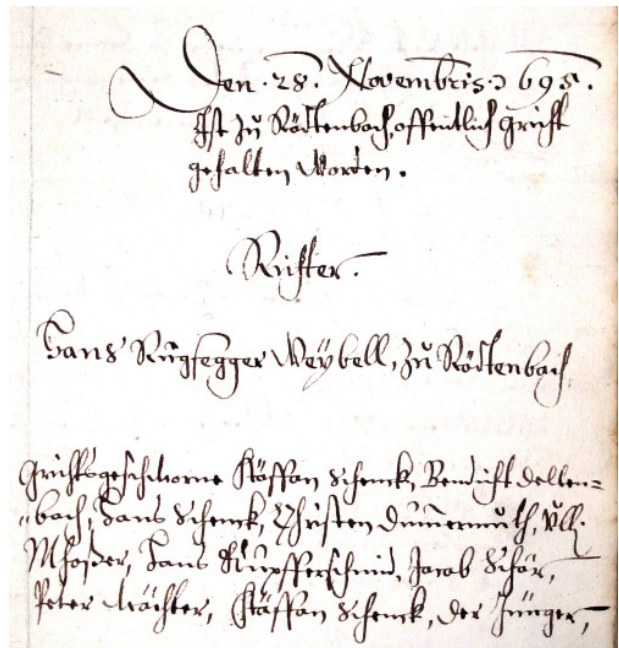 Den. 28. Novembris. 1695.
Ist zů Rödtenbach, offentlich gricht
gehalten worden.
Richter.
Hans Rügsegger Weÿbell, zů Rödtenbach
Grichtsgeschworne Stäffan Schenck, Bendicht Dellen=
"bach, Hans Schenck, Christen Dummermuth, Ulli
Moßer, Hans Kupfferschmid, Jacob Schär,
Peter Wächter, Stäffan Schenck, der Jünger,